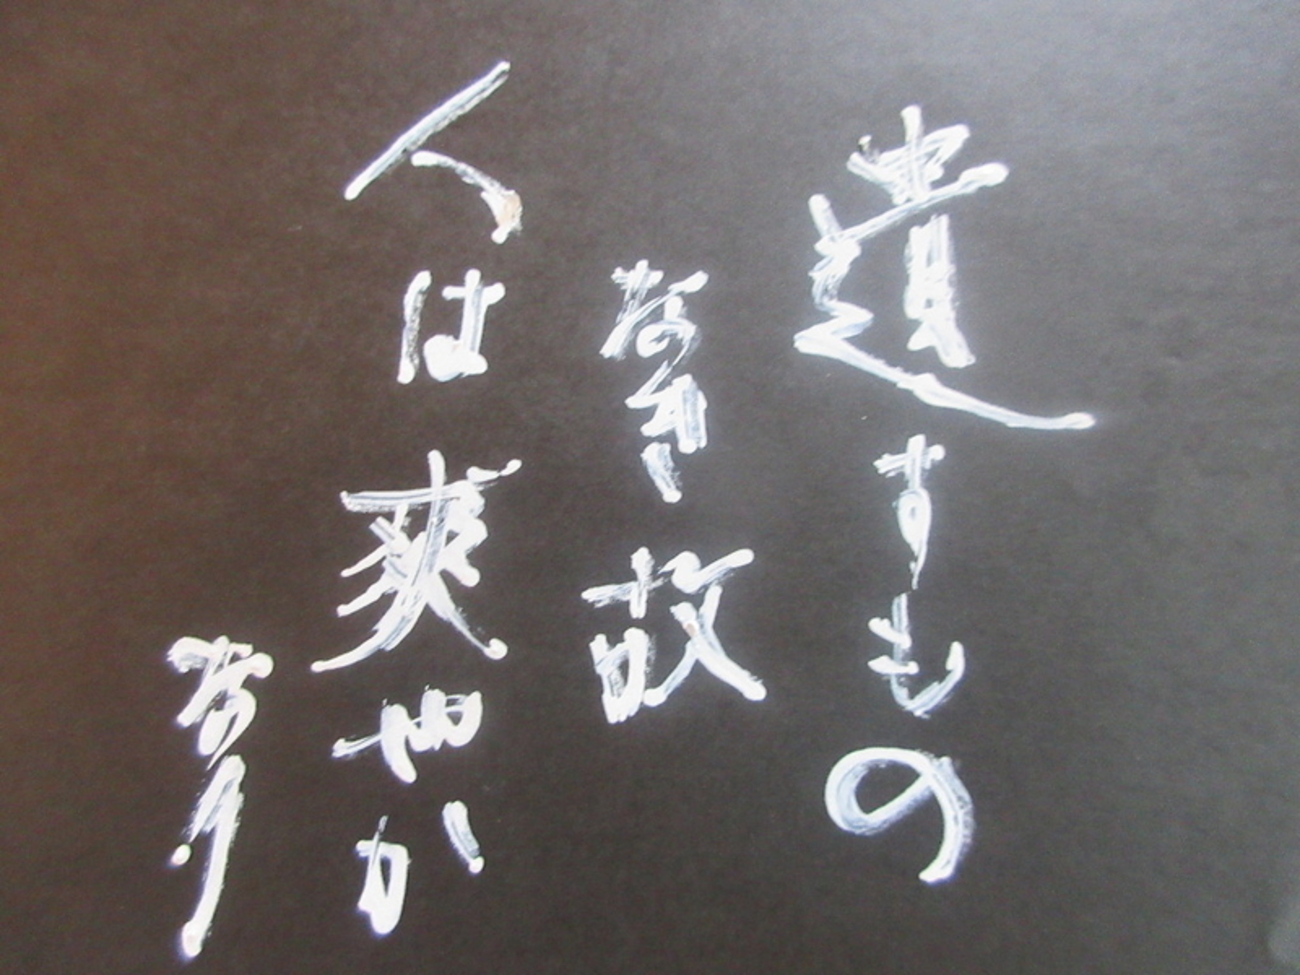 遺すもの
なき故
人は爽やか
なり